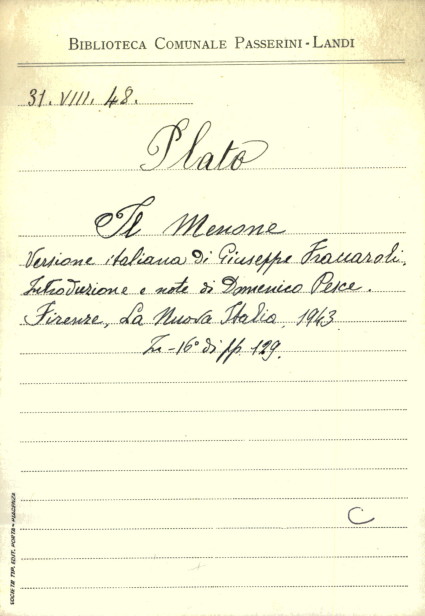 BIBLIOTECA COMUNALE PASSERINI-LANDI
31. VIII. 48.
Plato
Il Menone
Versione italiana di Giuseppe Fraccaroli.
Introduzione e note di Domenico Pesce.
Firenze, La Nuova Italia, 1943
In-16° di pp. 129.
C
SOCIETÀ TIP. EDIT. PORTA - PIACENZA